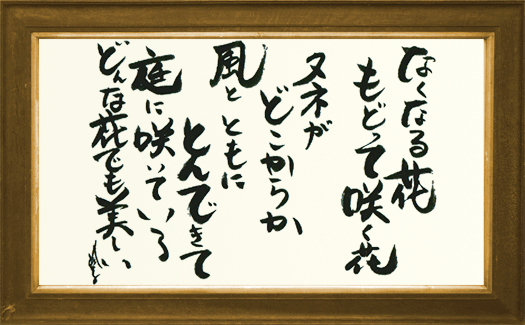 なくなる花
もどって咲く花
タネが
どこからか
風とともに
とんできて
庭に咲いている
どんな花でも美しい